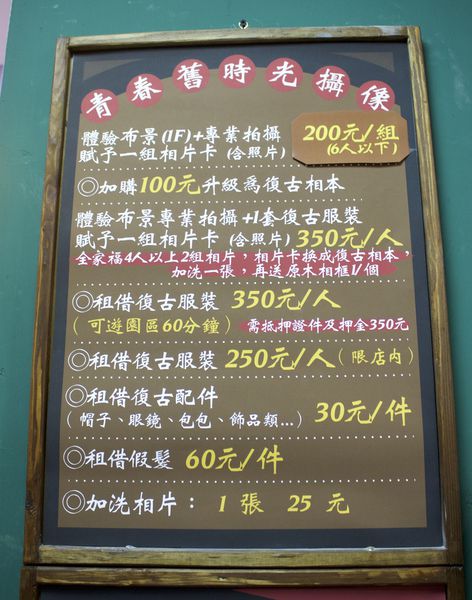 青春舊時光攝像
體驗布景(1F)+專業拍攝
賦予一組相片卡 (含照片)
200元/組
(6人以下)
◎加購100元升級為復古相本
體驗布景專業拍攝+1套復古服裝
賦予一組相片卡 (含照片) 350元/人
全家福4人以上2組相片，相片卡換成復古相本，
加洗一張，再送原木相框1/個
◎租借復古服裝 350元/人
(可遊園區60分鐘) 需抵押證件及押金350元
◎租借復古服裝 250元/人 (限店內)
◎租借復古配件
(帽子、眼鏡、包包、飾品類...) 30元/件
◎租借假髮 60元/件
◎加洗相片： 1 張 25 元